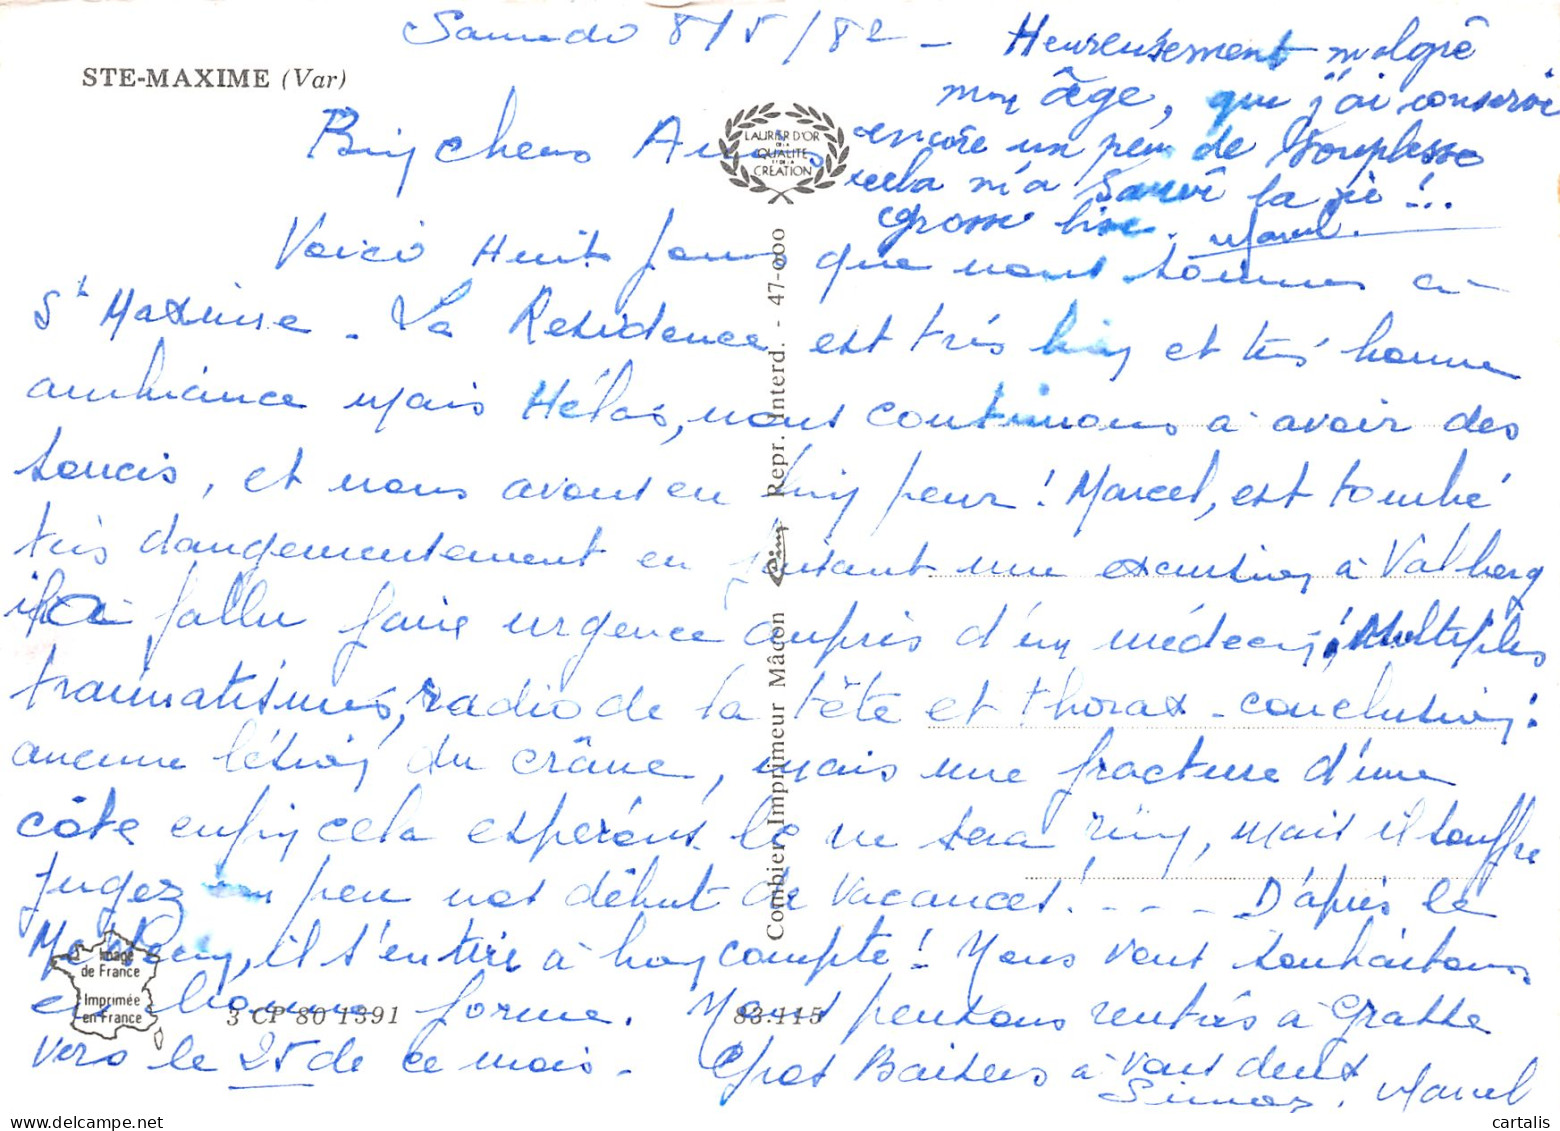 Samedi 8/5/82 -
STE-MAXIME (Var)
Bien chers Amis
LAURIER D'OR
DE LA
QUALITÉ
ET DE LA
CRÉATION
Voici Huit jours que nous sommes à
Ste Maxime - La Residence est très bien et très bonne
ambiance mais Hélas, nous continuons à avoir des
soucis, et nous avons eu bien peur! Marcel, est tombé
très dangereusement en faisant une excursion à Valberg
il a fallu faire urgence auprès d'un médecin! Multiples
traumatismes, radio de la tête et thorax - conclusion:
aucune lésion du crâne, mais une fracture d'une
côte enfin cela espérons le ne sera rien, mais il souffre
Jugez un peu not début de vacances! - - - D'après le
Médecin, il s'en tire à bon compte! Nous vous souhaitons
en bonne forme. Nous pensons rentrés à Grasse
vers le 25 de ce mois - Gros Baisers à vous deux
Marcel
Heureusement malgré
mon âge, que j'ai conservé
encore un peu de souplesse
cela m'a sauvé la vie!..
grosse bise. Marcel.
Combier Imprimeur Mâcon
Cim
Repr. Interd. - 47-000
Image
de France
Imprimée
en France
3 CP 80 1391
83.115
cartalis